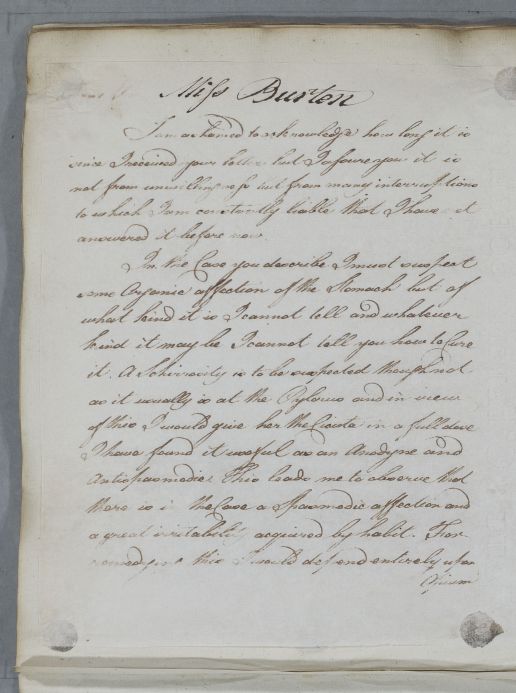 Miss Burten
I am ashamed to acknowledge how long it is
since I received your letter but I assure you it is
not from unwillingness but from many interruptions
to which I am constantly liable that I have not
answered it before now
In the Case you describe I must suspect
some Organic affection of the Stomach but of
what kind it is I cannot tell and whatever
kind it may be I cannot tell you how to Cure
it. A Schirrosity is to be suspected though not
as it usually is at the Pylorus and in view
of this I would give her the Cicuta in a full dose
I have found it useful as an Anodyne and
Antispasmodic. This leads me to observe that
there is in the Case a Spasmodic affection and
a great irritability acquired by habit. For
remedying this I would depend entirely upon
Opium